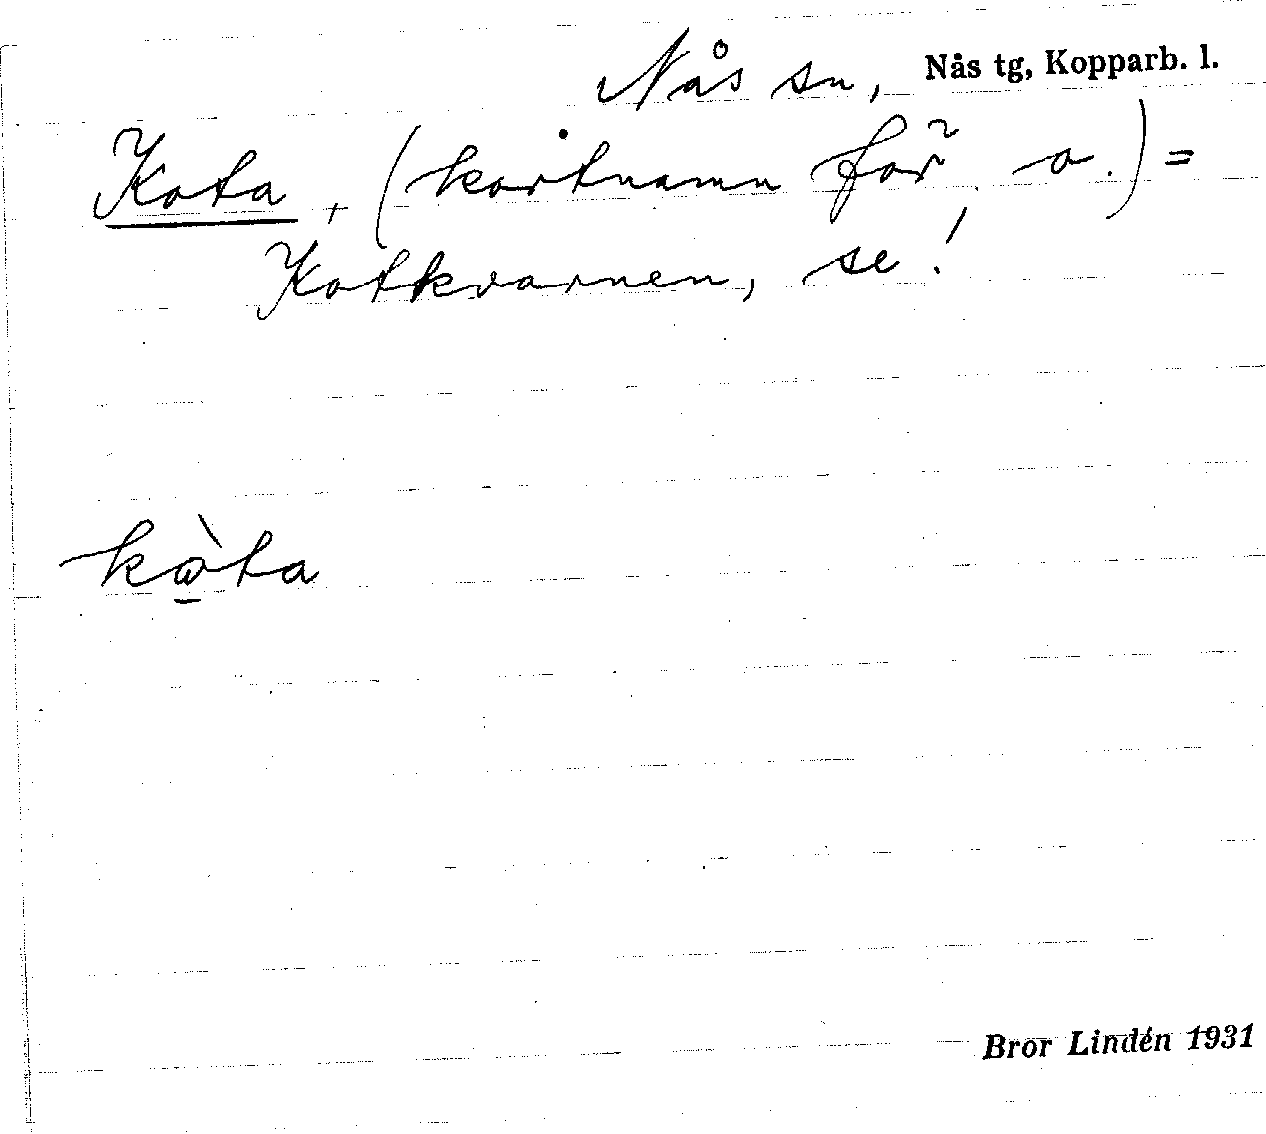 Nås sn, Nås tg, Kopparb. l.
Kota, (kortnamn för, o.) =
Kotkvarnen, se!
kàta
Bror Lindén 1931